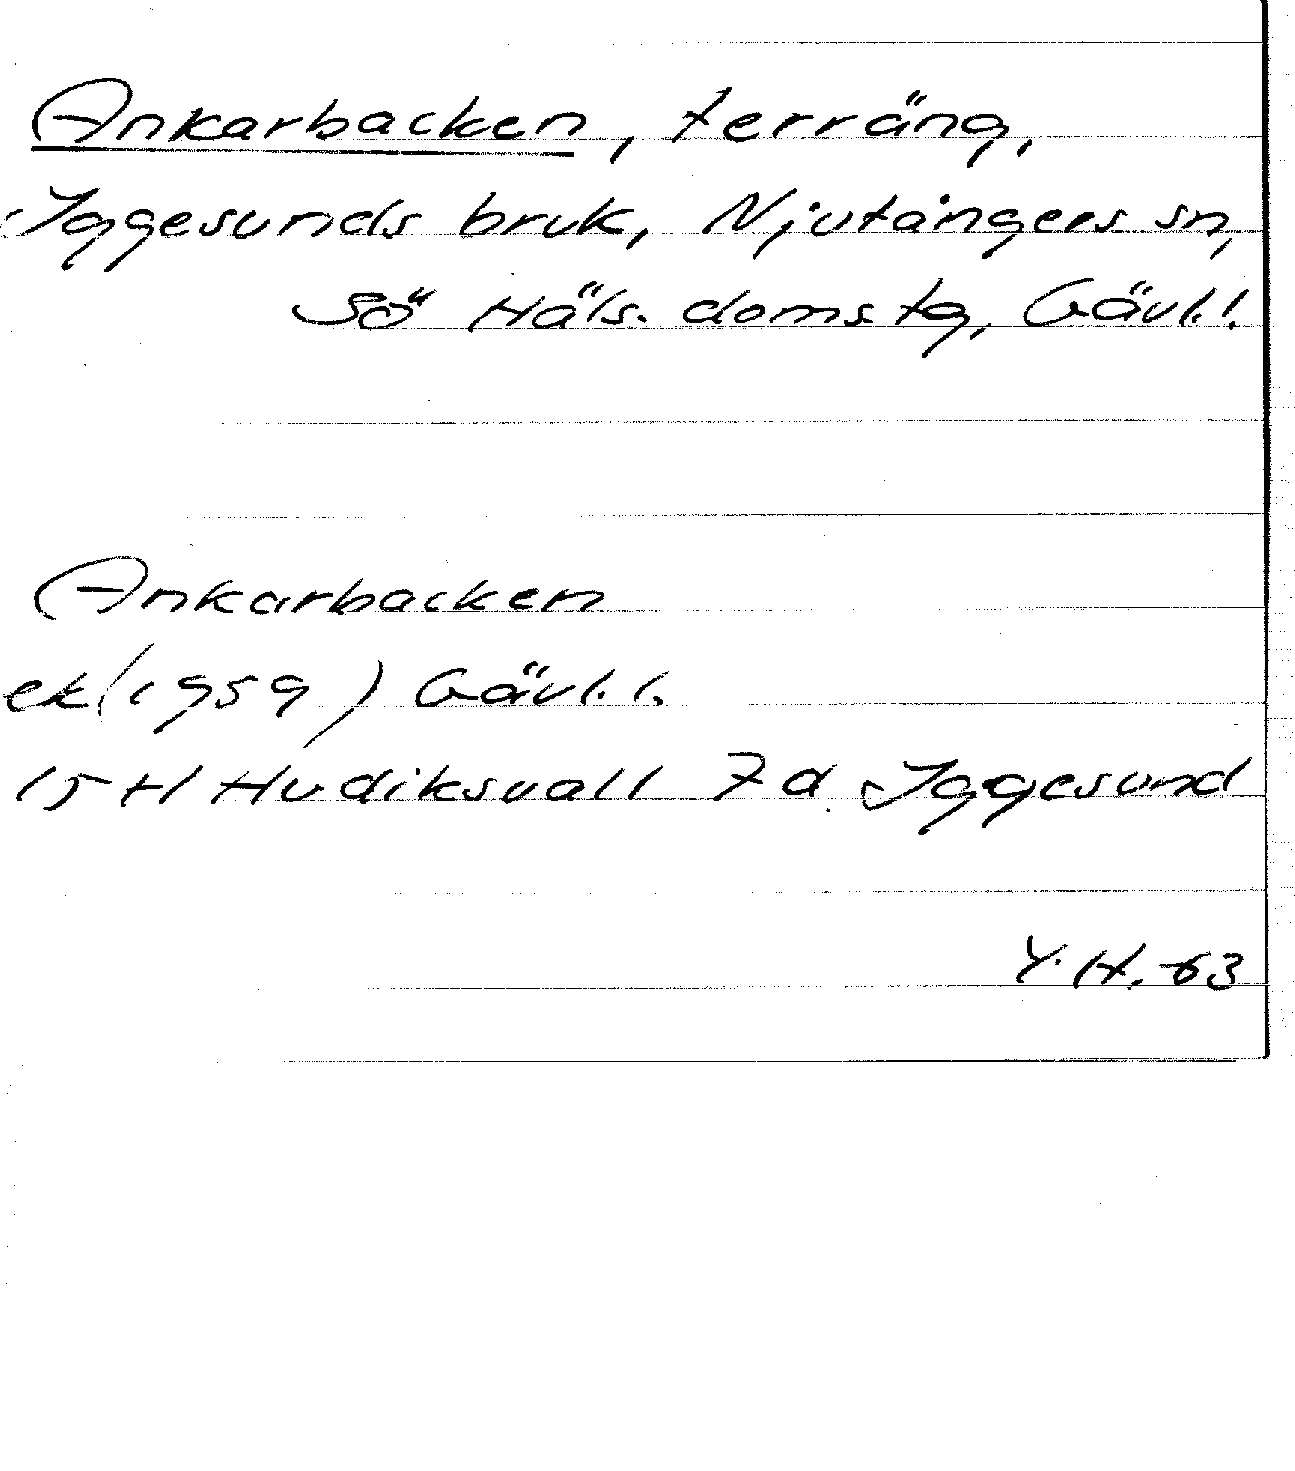 Ankarbacken, terräng,
Iggesunds bruk, Njutångers sn,
Sö Häls. domstg, Gävl.l.
Ankarbacken
ek (1959) Gävl. l.
15 H Hudiksvall 7d Iggesund
Y. H. -63